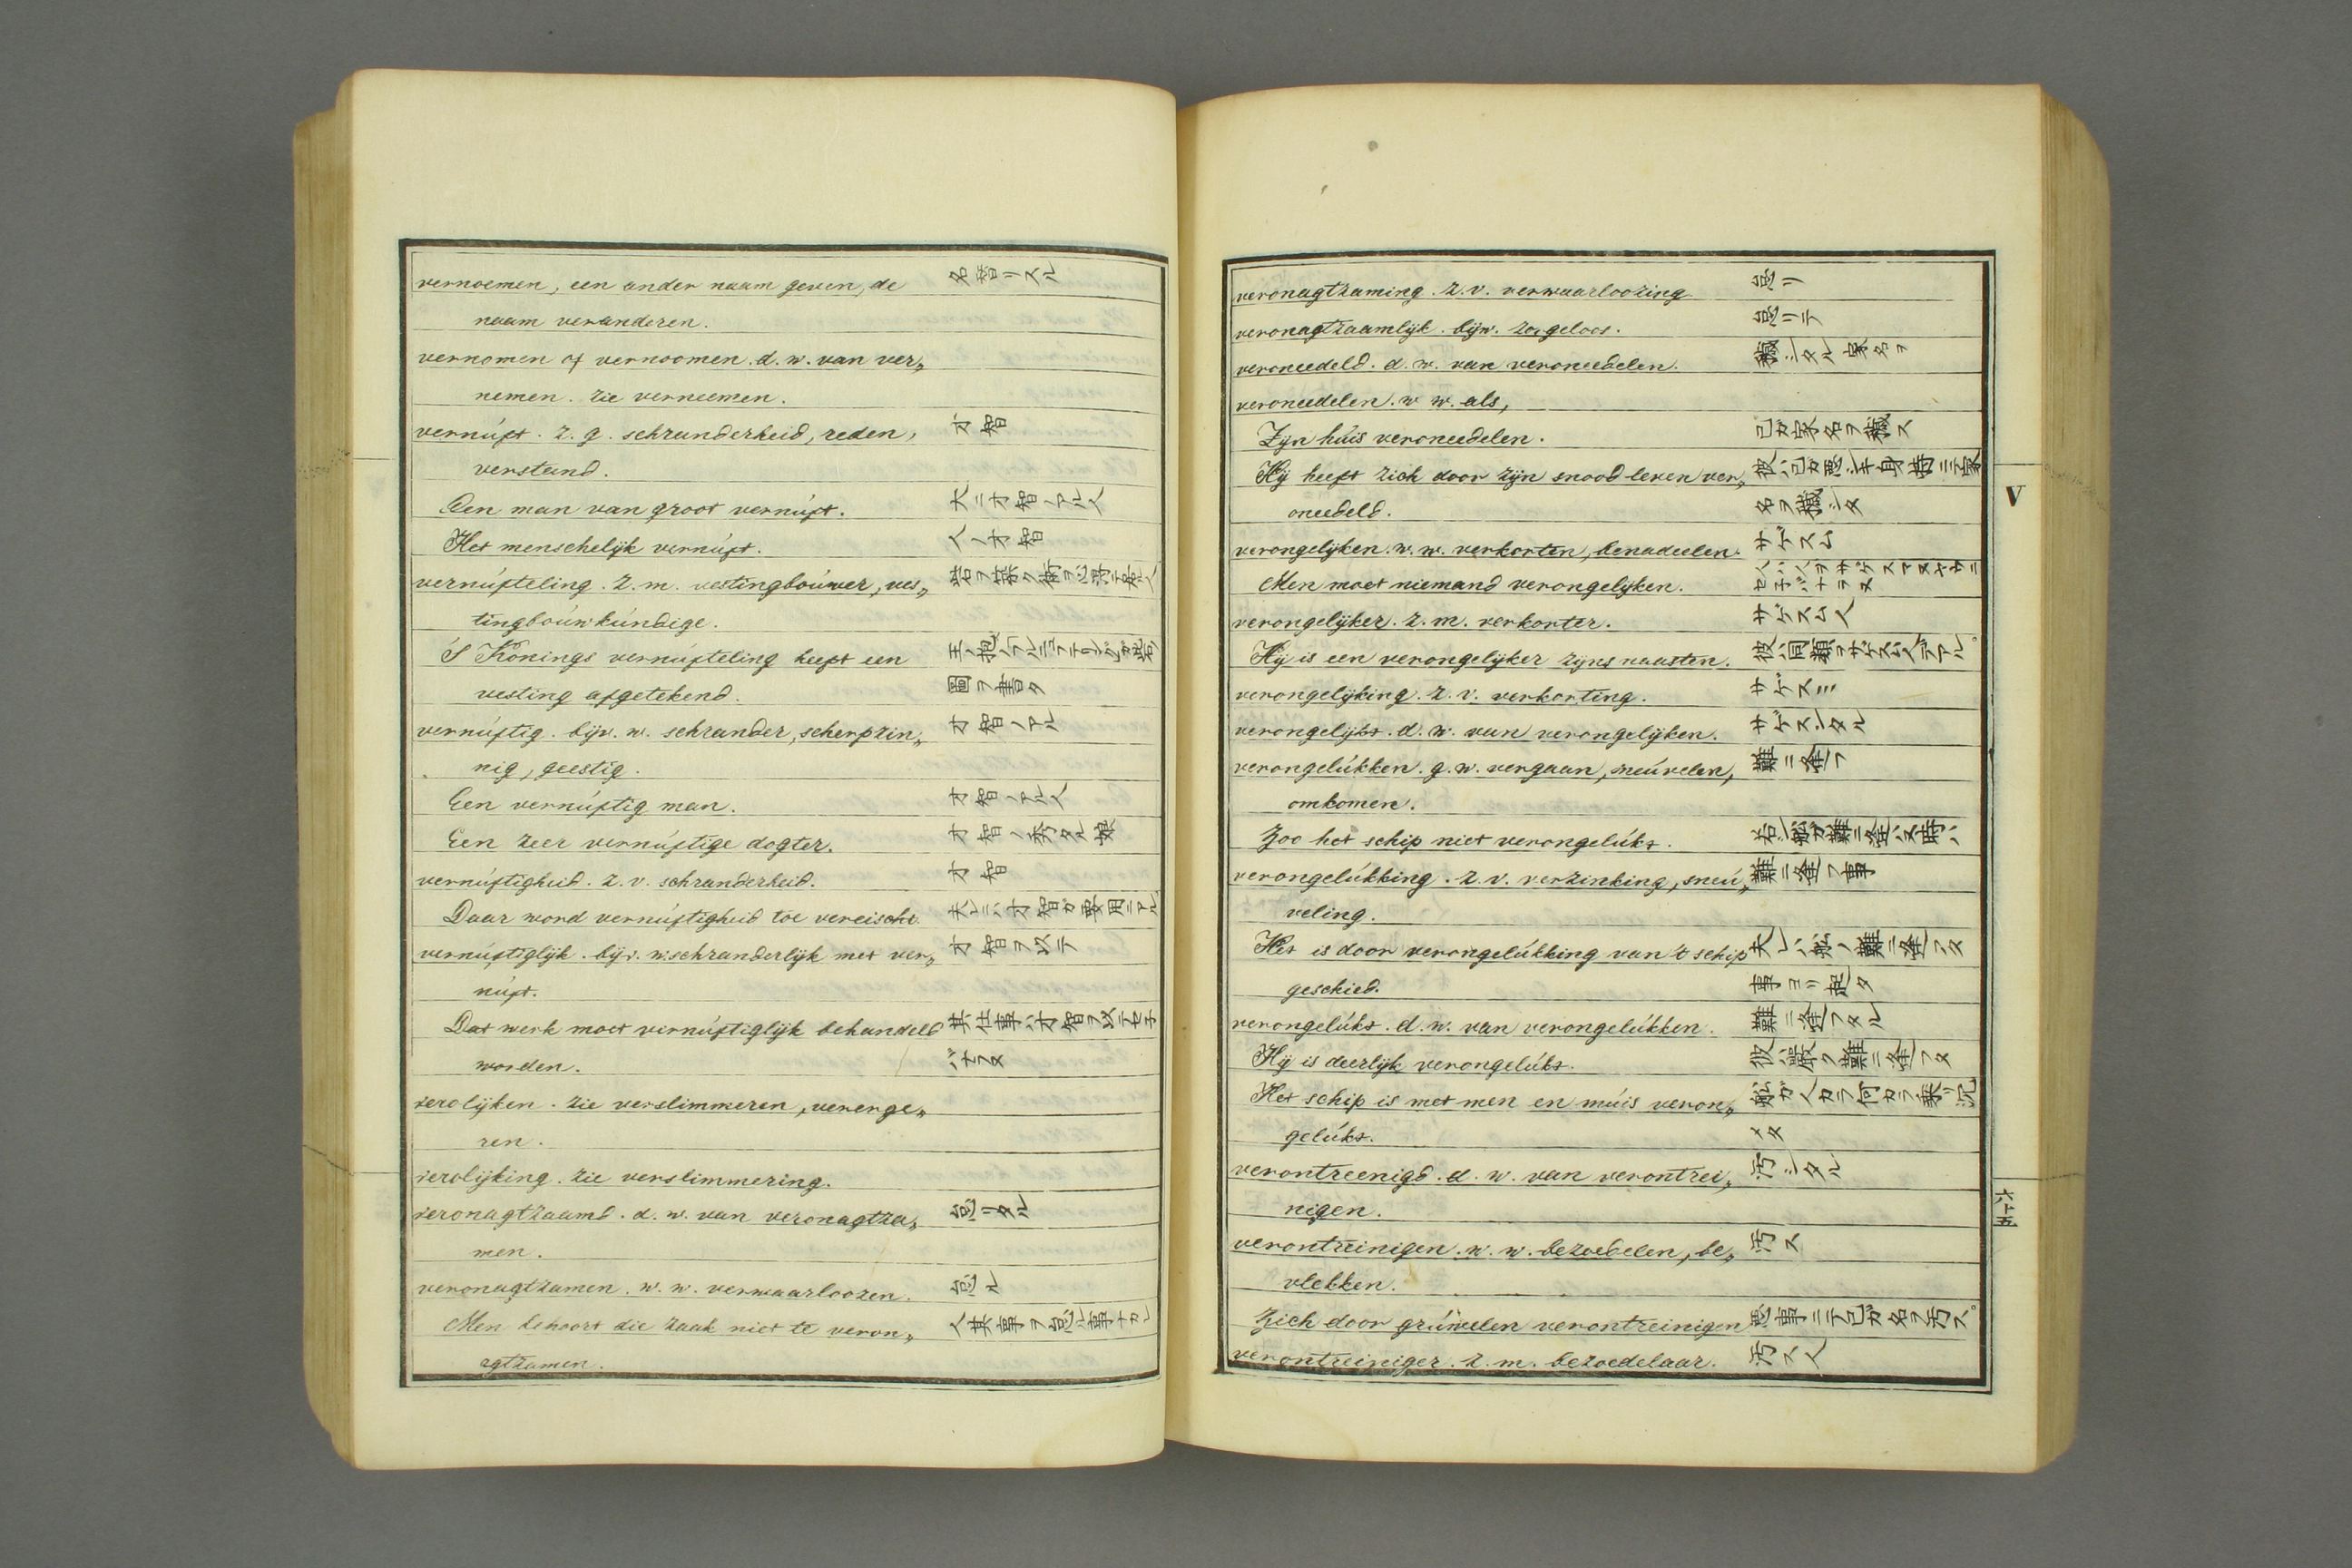 vernoemen, een ander naam geven, de 名替リスル
naam veranderen.
vernomen of vernoomen. d. w. van ver„
nemen. zie verneemen.
vernúft. z. g. schranderheid, reden, 才智
verstand.
Een man van groot vernúft. 大ニ才智ノアル人
Het menschelijk vernúft. 人ノ才智
vernúfteling. z. m. vestingboúwer, ves„
tingboúwkúndige.
'S Konings vernúfteling heeft een
vesting afgetekend. 圖ヲ書タ
vernúftig. bijv. w. schrander, scherpzin„ 才智ノアル
nig, geestig.
Een vernúftig man. 才智ノアル人
Een zeer vernúftige dogter. 才智ノ秀タル娘
vernúftigheid. z. v. schranderheid. 才智
Daar word vernúftigheid toe vereischt. 夫レニハ才智ガ要用テアル
vernúftiglijk. bijv. w. schranderlijk met ver„ 才智ヲ以テ
núft.
Dat werk moet vernúftiglijk behandeld 其仕事ハ才智ヲ以テセ子
worden. バナラヌ
verolijken. zie verslimmeren, verenge„
ren.
verolijking. zie verslimmering.
veronagtzaamd. d. w. van veronagtza„ 怠リタル
men.
veronagtzamen. w. w. verwaarloozen. 怠ル
Men behoort die zaak niet te veron„ 人其事ヲ怠ル事ナカレ
agtzamen.
veronagtzaming. z. v. verwaarloozing 怠リ
veronagtzaamlijk. bijw. zorgeloos. 怠リテ
veroneedeld. d. w. van veroneedelen. 穢シタル家名ヲ
veroneedelen. w. w. als,
Zijn húis veroneedelen. 己ガ家名ヲ穢ス
Hij heeft zich door zijn snood leven ver„ 彼ハ己ガ悪シキ身持ニテ家
oneedeld. 名ヲ穢シタ
verongelijken. w. w. verkorten, benadeelen. サゲスム
Men moet niemand verongelijken.
verongelijker. z. m. verkorter. サゲスム人
Hij is een verongelijker zijns naasten. 彼ハ同類ヲサゲスム人デアル。
verongelijking. z. v. verkorting. サゲスミ
verongelijkt. d. w. van verongelijken. サゲスンタル
verongelúkken. g. w. vergaan, sneúvelen, 難ニ逢フ
omkomen.
Zoo het schip niet verongelúkt. 若シ舩ガ難ニ逢ハヌ時ハ
verongelúkking. z. v. verzinking, sneú„ 難ニ逢フ事
veling.
Het is door verongelúkking van 't schip 夫レハ舩ノ難ニ逢フタ
geschied. 事ヨリ起タ
verongelúkt. d. w. van verongelúkken. 難ニ逢フタル
Hij is deerlijk verongelúkt. 彼ハ嚴ク難ニ逢フタ
Het schip is met men en múis veron„ 舩ガ人カラ何カラ乗リ沉
gelúkt. メタ
verontreenigd. d. w. van verontrei„ 汚シタル
nigen.
verontreinigen. w. w. bezoedelen, be„ 汚ス
vlekken.
Zich door grúwelen verontreinigen 悪事ニテ己ガ名ヲ汚ス。
verontreiniger. z. m. bezoedelaar. 汚ス人
V
六十五